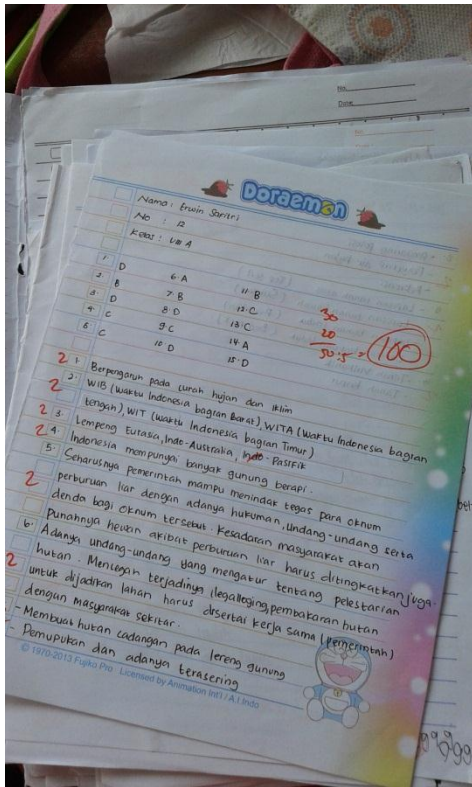 No.
Date
Doraemon
Nama : Erwin Sariri
No : 12
Kelas : VIII A
1. D
2. B
3. D
4. C
5. C
6. A
7. B
8. D
9. C
10. D
11. B
12. C
13. C
14. A
15. D
30
20
50:5 = 100
2 1. Berpengaruh pada curah hujan dan iklim
2 2. WIB (Waktu Indonesia bagian Barat), WITA (Waktu Indonesia bagian
tengah), WIT (Waktu Indonesia bagian Timur)
2 3. Lempeng Eurasia, Indo-Australia, Indo-Pasifik
2 4. Indonesia mempunyai banyak gunung berapi.
5. Seharusnya pemerintah mampu menindak tegas para oknum
2 perburuan liar dengan adanya hukuman, undang-undang serta
denda bagi oknum tersebut. Kesadaran masyarakat akan
Punahnya hewan akibat perburuan liar harus ditingkatkan juga.
6. Adanya undang-undang yang mengatur tentang pelestarian
2 hutan. Mencegah terjadinya ilegalloging, pembakaran hutan
untuk dijadikan lahan harus disertai kerja sama (pemerintah)
dengan masyarakat sekitar.
- Membuat hutan cadangan pada lereng gunung
- Pemupukan dan adanya terasering
© 1970-2013 Fujiko Pro - Licensed by Animation Int'l / A.I. Indo